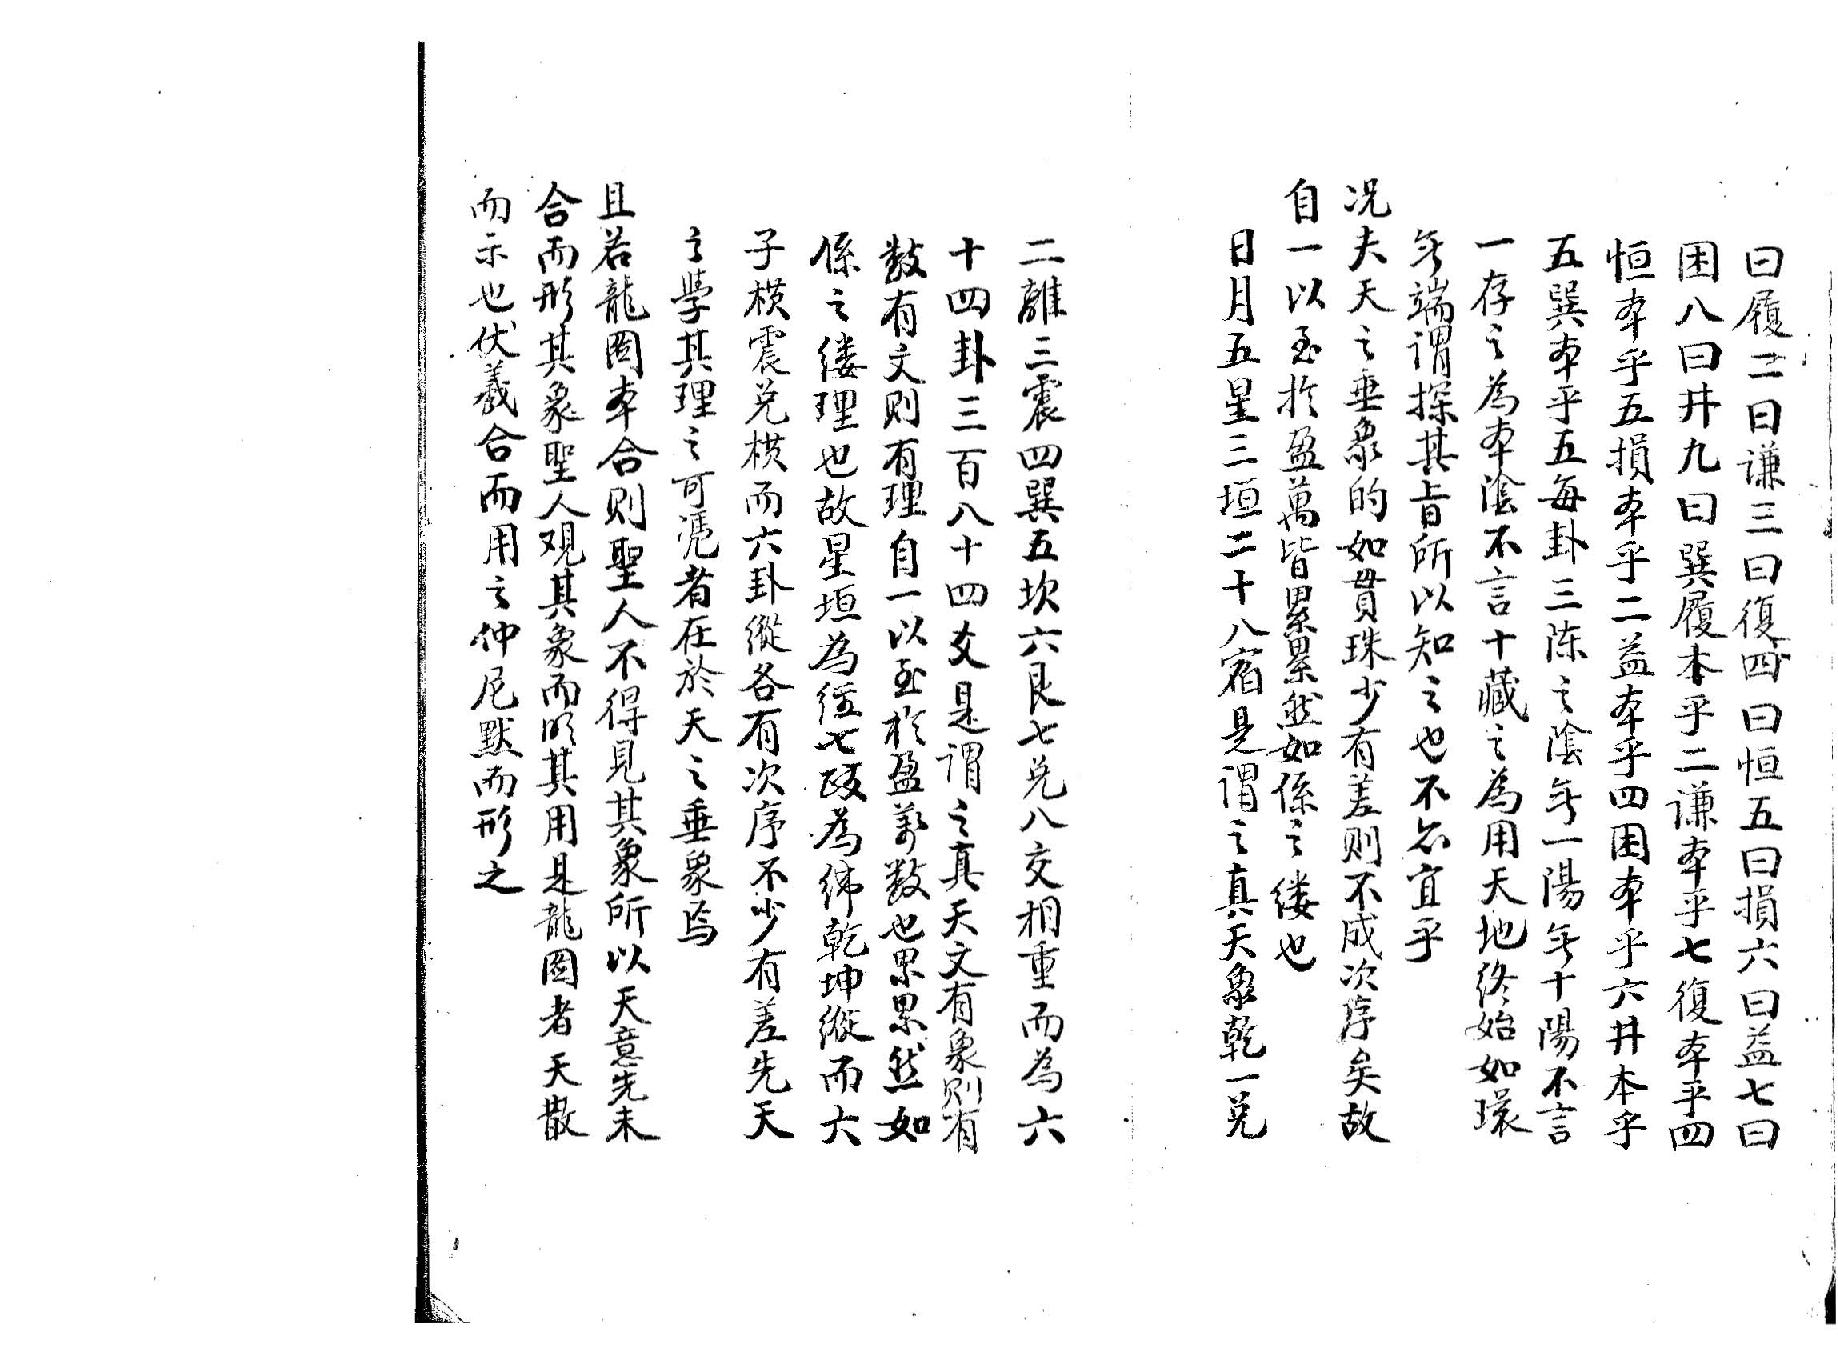 曰履二曰謙三曰復四曰恒五曰損六曰益七曰
困八曰井九曰巽履本乎二謙本乎七復本乎四
恒本乎五損本乎二益本乎四困本乎六井本乎
五巽本乎五每卦三陳之陰無一陽無十陽不言
一存之為本陰不言十藏之為用天地終始如環
無端謂探其旨所以知之也不亦宜乎
況夫天之垂象的如貫珠少有差則不成次序矣故
自一以至於盈萬皆累累然如係之縷也
日月五星三垣二十八宿是謂之真天象乾一兌
二離三震四巽五坎六艮七兌八交相重而為六
十四卦三百八十四爻是謂之真天文有象則有
數有文則有理自一以至於盈萬數也累累然如
係之縷理也故星垣為經七政為緯乾坤縱而大
子橫震兌橫而六卦縱各有次序不少有差先天
之學其理之可憑者在於天之垂象焉
且若龍圖本合則聖人不得見其象所以天意先未
合而形其象聖人观其象而明其用是龍圖者天散
而示也伏羲合而用之仲尼默而形之